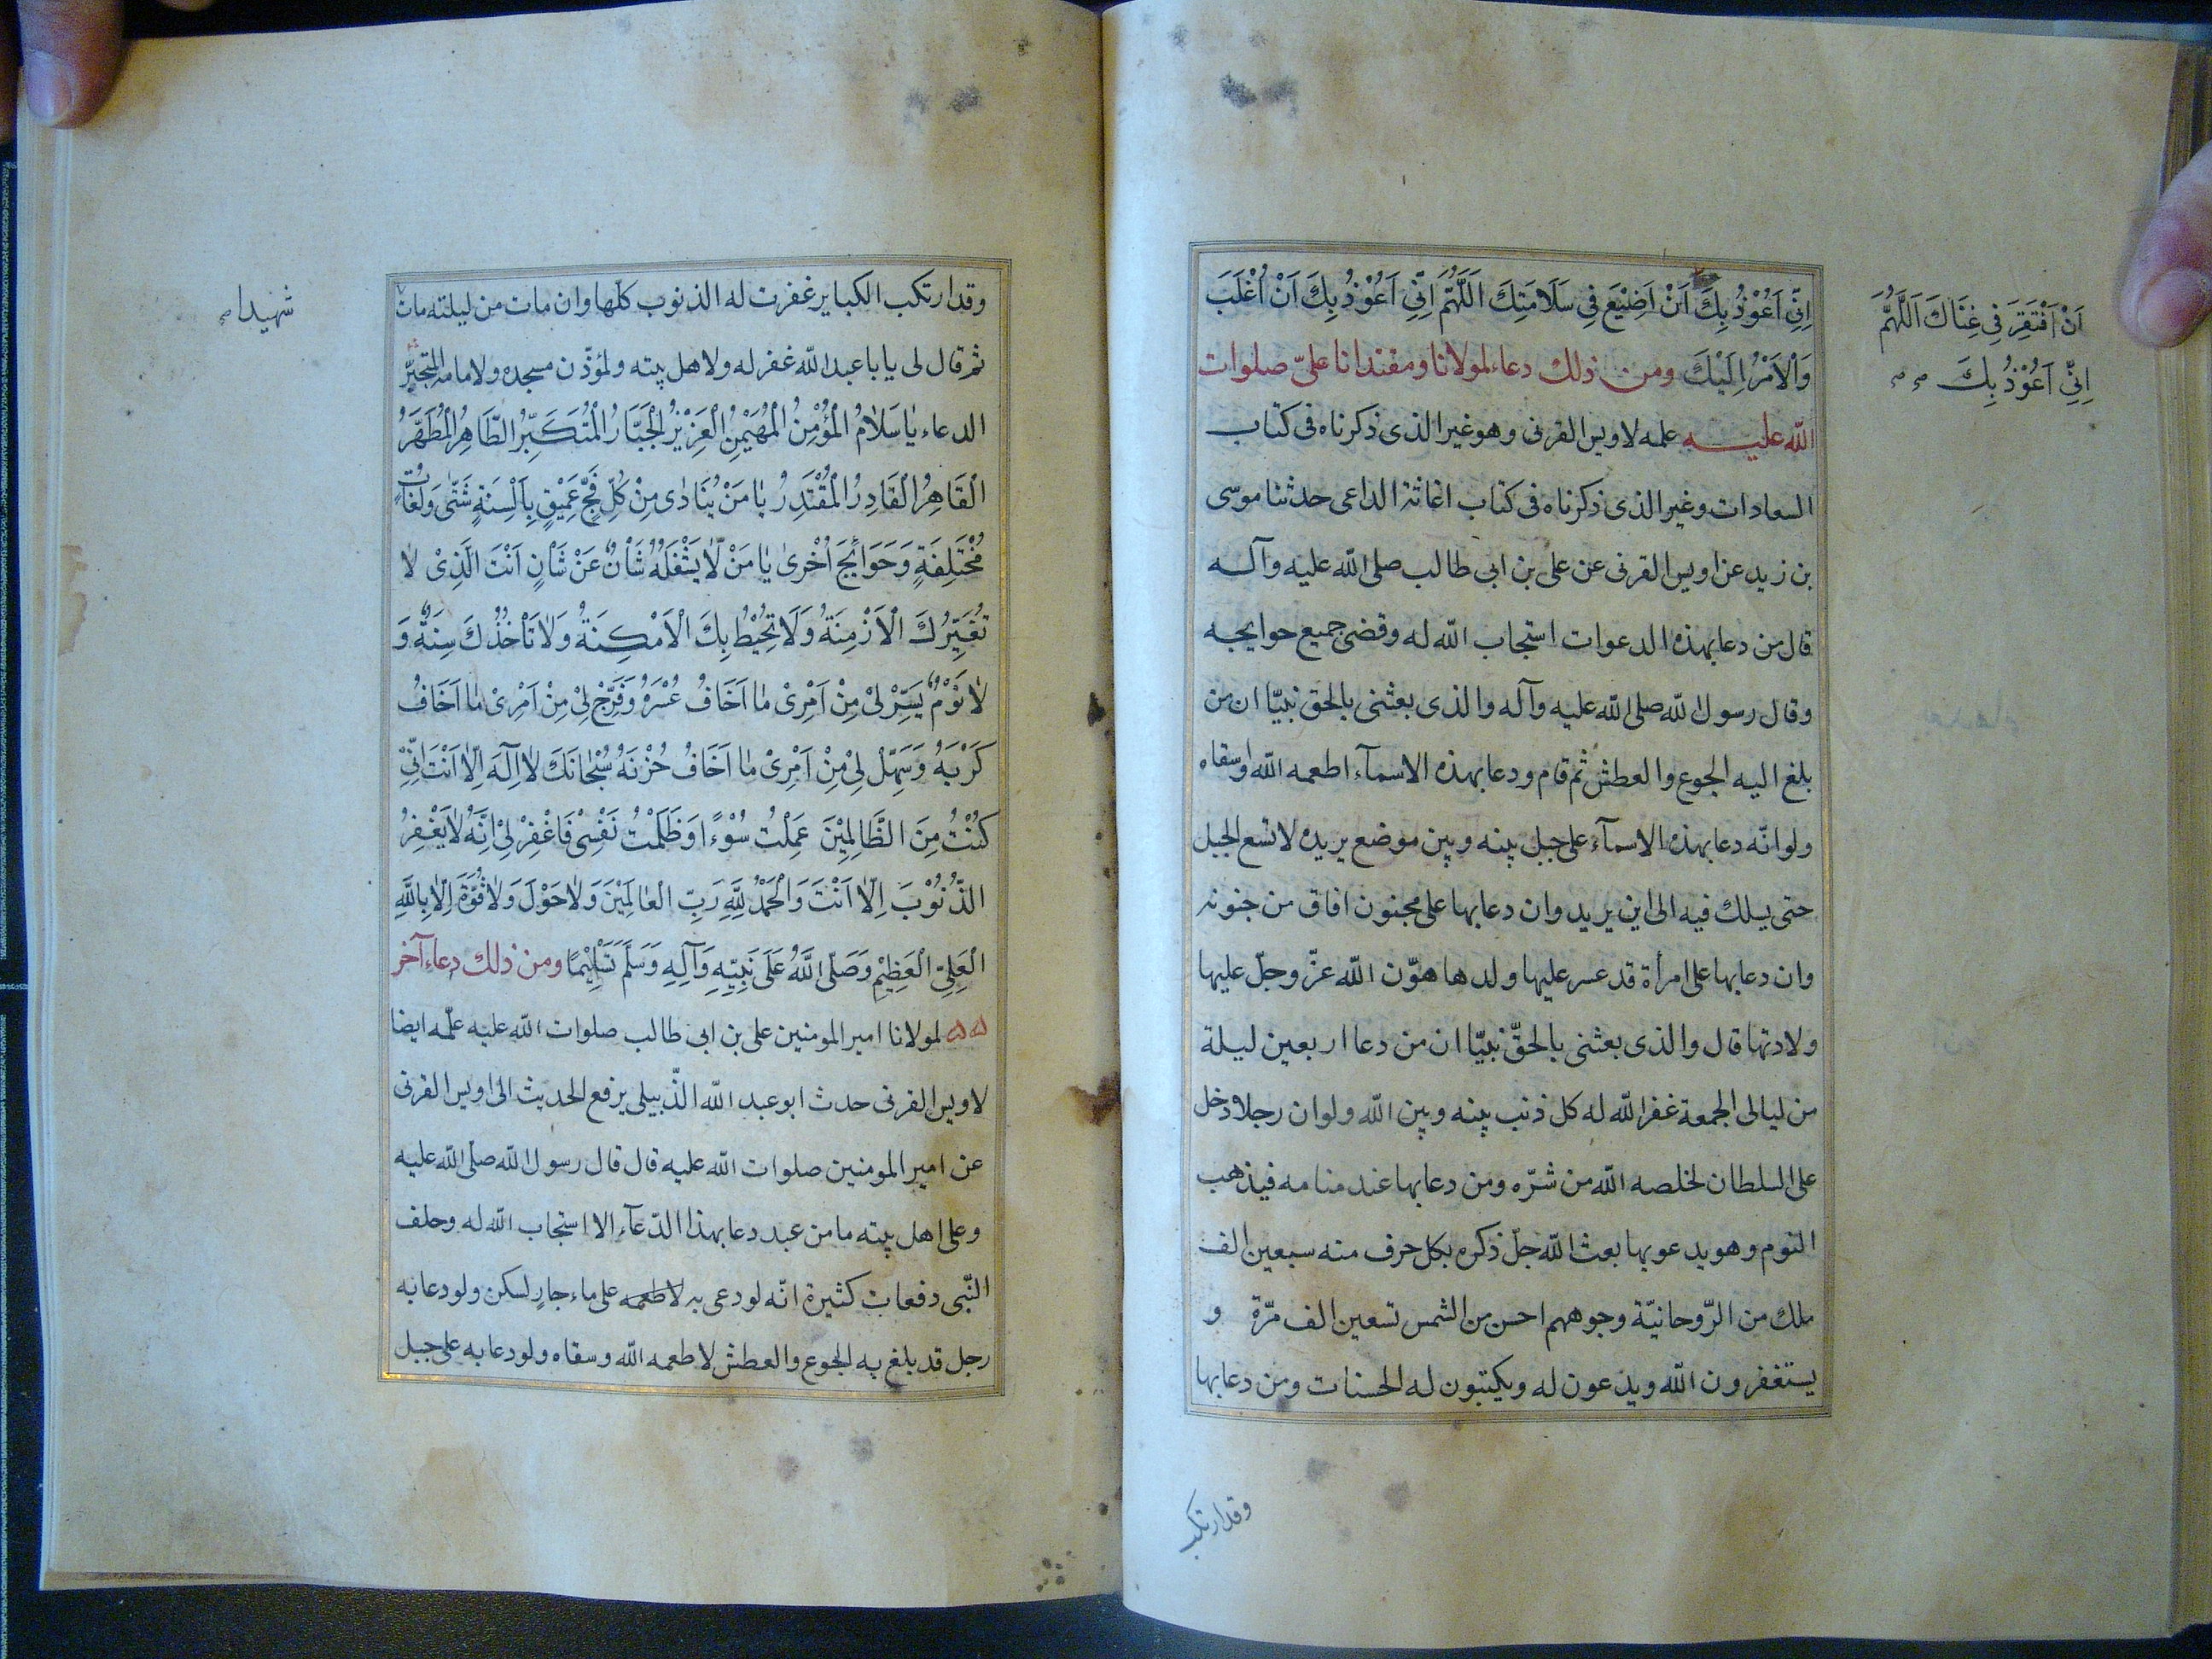 اَنْ اَفْتَقِرَ فِي غِنَاكَ اَللَّهُمَّ
اِنِّي اَعُوْذُ بِكَ
اِنِّي اَعُوْذُ بِكَ اَنْ اَضِيْعَ فِي سَلَامَتِكَ اَللَّهُمَّ اِنِّي اَعُوْذُ بِكَ اَنْ اُغْلَبَ
وَالْاَمْرُ اِلَيْكَ ومن ذلك دعاء لمولانا ومقتدانا علىّ صلوات
الله عليه علمه لاويس القرنى وهو غير الذى ذكرناه فى كتاب
السعادات وغير الذى ذكرناه فى كتاب اغاثة الداعى حدثنا موسى
بن زيد عن اويس القرنى عن على بن ابى طالب صلى الله عليه وآله
قال من دعا بهذه الدعوات استجاب الله له وقضى جميع حوايجه
وقال رسول الله صلى الله عليه وآله والذى بعثنى بالحق نبيّا ان من
بلغ اليه الجوع والعطش ثم قام ودعا بهذه الاسمآء اطعمه الله وسقاه
ولو انّه دعا بهذه الاسمآء على جبل بينه وبين موضع يريده لاتسع الجبل
حتى يسلك فيه الى اين يريد وان دعا بها على مجنون افاق من جنونه
وان دعا بها على امرأة قد عسر عليها ولدها هوّن الله عزّ وجلّ عليها
ولادتها قال والذى بعثنى بالحقّ نبيّا ان من دعا اربعين ليلة
من ليالى الجمعة غفر الله له كل ذنب بينه وبين الله ولو ان رجلا دخل
على السلطان لخلصه الله من شرّه ومن دعا بها عند منامه فيذهب
النوم وهو يدعو بها بعث الله جلّ ذكره بكل حرف منه سبعين الف
ملك من الرّوحانيّة وجوههم احسن من الشمس تسعين الف مرّة و
يستغفرون الله ويدعون له ويكتبون له الحسنات ومن دعا بها
وقد ارتكب
وقد ارتكب الكباير غفرت له الذنوب كلها وان مات من ليلته مات
شهيدا
ثم قال لى يا با عبد الله غفر له ولاهل بيته ولمؤذّن مسجده ولامامه المتجيّر
الدعاء يَا سَلَامُ الْمُؤْمِنُ الْمُهَيْمِنُ الْعَزِيْزُ الْجَبَّارُ الْمُتَكَبِّرُ الطَّاهِرُ الْمُطَهَّرُ
الْقَاهِرُ الْقَادِرُ الْمُقْتَدِرُ يَا مَنْ يُنَادٰى مِنْ كُلِّ فَجٍّ عَمِيْقٍ بِاَلْسِنَةٍ شَتّٰى وَلُغَاتٍ
مُخْتَلِفَةٍ وَحَوَائِجَ اُخْرٰى يَا مَنْ لَا يَشْغَلُهُ شَأْنٌ عَنْ شَأْنٍ اَنْتَ الَّذِىْ لَا
تُغَيِّرُكَ الْاَزْمِنَةُ وَلَا تُحِيْطُ بِكَ الْاَمْكِنَةُ وَلَا تَأْخُذُكَ سِنَةٌ وَ
لَا نَوْمٌ يَسِّرْ لِىْ مِنْ اَمْرِىْ مَا اَخَافُ عُسْرَهُ وَفَرِّجْ لِىْ مِنْ اَمْرِىْ مَا اَخَافُ
كَرْبَهُ وَسَهِّلْ لِىْ مِنْ اَمْرِىْ مَا اَخَافُ حُزْنَهُ سُبْحَانَكَ لَا اِلٰهَ اِلَّا اَنْتَ اِنِّىْ
كُنْتُ مِنَ الظَّالِمِيْنَ عَمِلْتُ سُوْءًا وَظَلَمْتُ نَفْسِىْ فَاغْفِرْ لِىْ اِنَّهُ لَا يَغْفِرُ
الذُّنُوْبَ اِلَّا اَنْتَ وَالْحَمْدُ لِلّٰهِ رَبِّ الْعَالَمِيْنَ وَلَا حَوْلَ وَلَا قُوَّةَ اِلَّا بِاللّٰهِ
الْعَلِىِّ الْعَظِيْمِ وَصَلَّى اللّٰهُ عَلٰى نَبِيِّهِ وَآلِهِ وَسَلَّمَ تَسْلِيْمًا ومن ذلك دعاء آخر
لمولانا امير المومنين على بن ابى طالب صلوات الله عليه علّمه ايضا
لاويس القرنى حدث ابو عبد الله الذّبيلى يرفع الحديث الى اويس القرنى
عن امير المومنين صلوات الله عليه قال قال رسول الله صلى الله عليه
وعلى اهل بيته ما من عبد دعا بهذا الدّعآء الا استجاب الله له وحلف
النّبى دفعات كثيرة انّه لو دعى به لاطعمه على ماء جارٍ لسكن ولو دعا به
رجل قد بلغ به الجوع والعطش لاطعمه الله وسقاه ولو دعا به على جبل